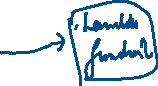 Lambda
function